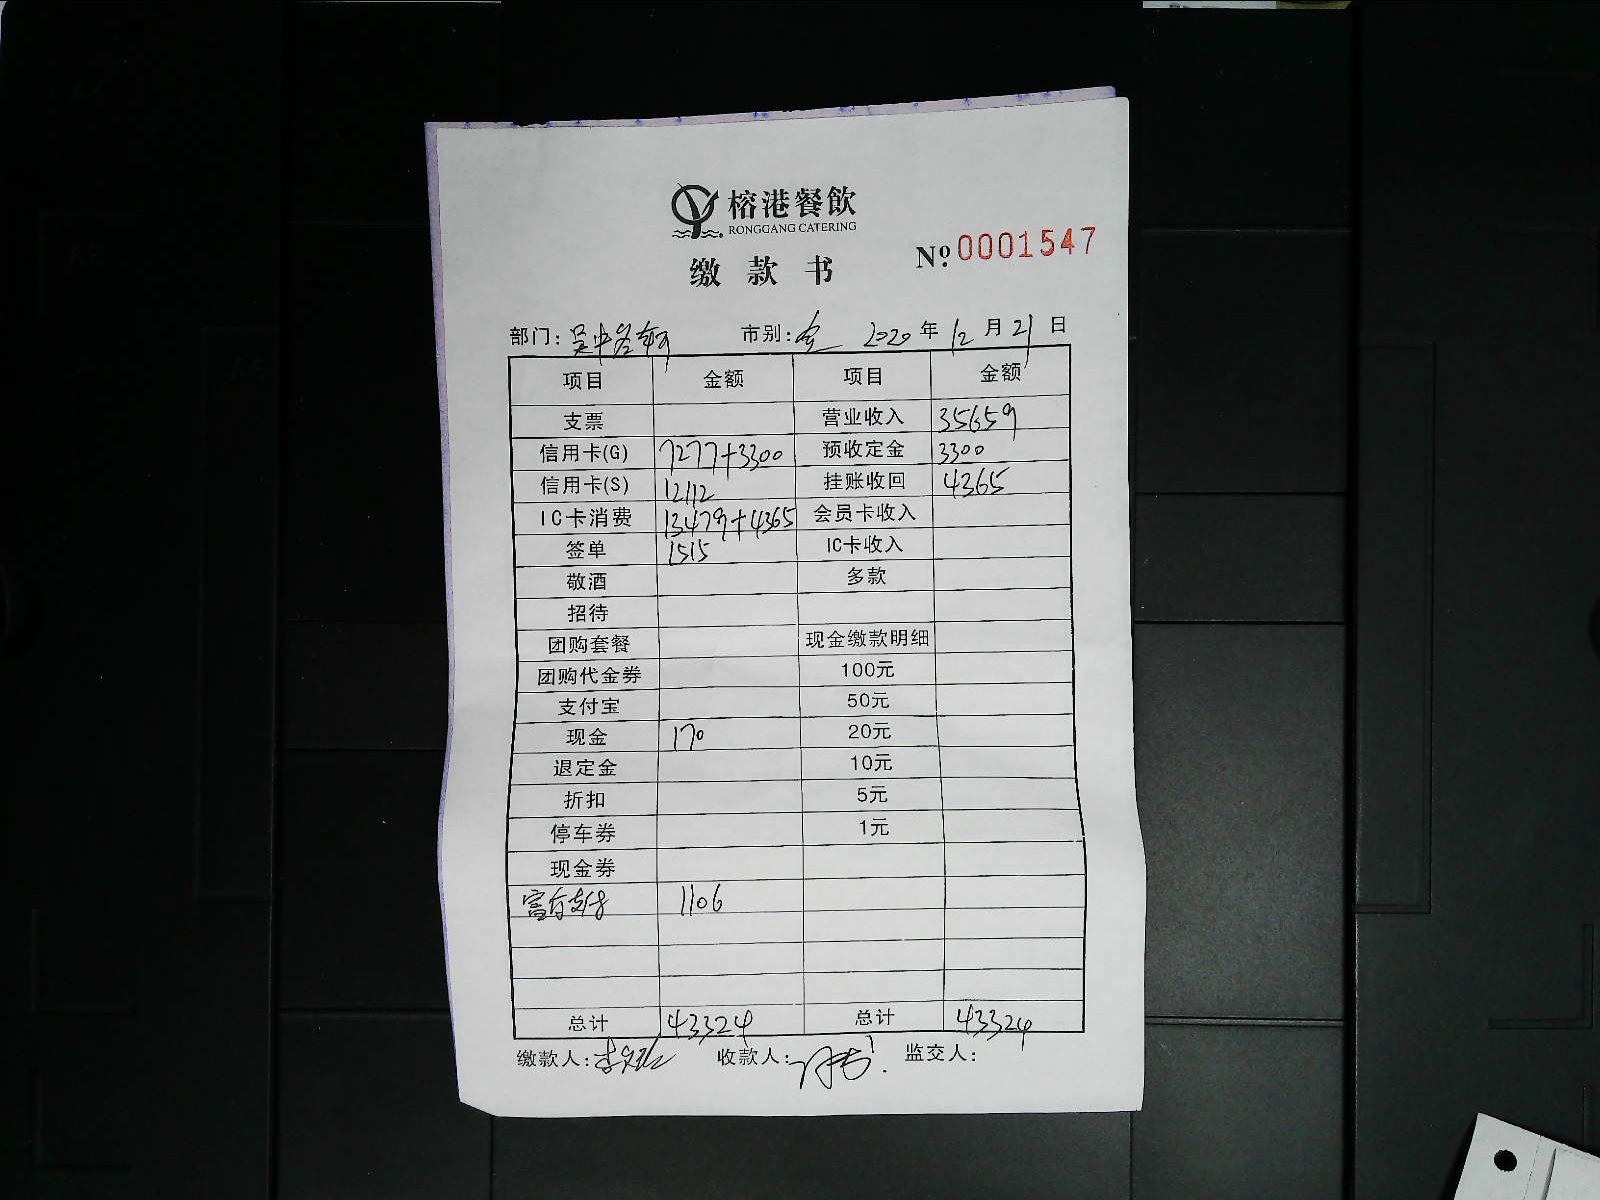 榕港餐飲
RONGGANG CATERING
缴款书
Nº 0001547
部门: 吴中 市别: 全 2020年12月21日
项目 金额 项目 金额
支票 营业收入 35659
信用卡(G) 7277+3300 预收定金 3300
信用卡(S) 12112 挂账收回 4365
IC卡消费 13479+4365 会员卡收入
签单 1515 IC卡收入
敬酒 多款
招待
团购套餐 现金缴款明细
团购代金券 100元
支付宝 50元
现金 170 20元
退定金 10元
折扣 5元
停车券 1元
现金券
富友支付 1106
总计 43324 总计 43324
缴款人: 收款人: 监交人: